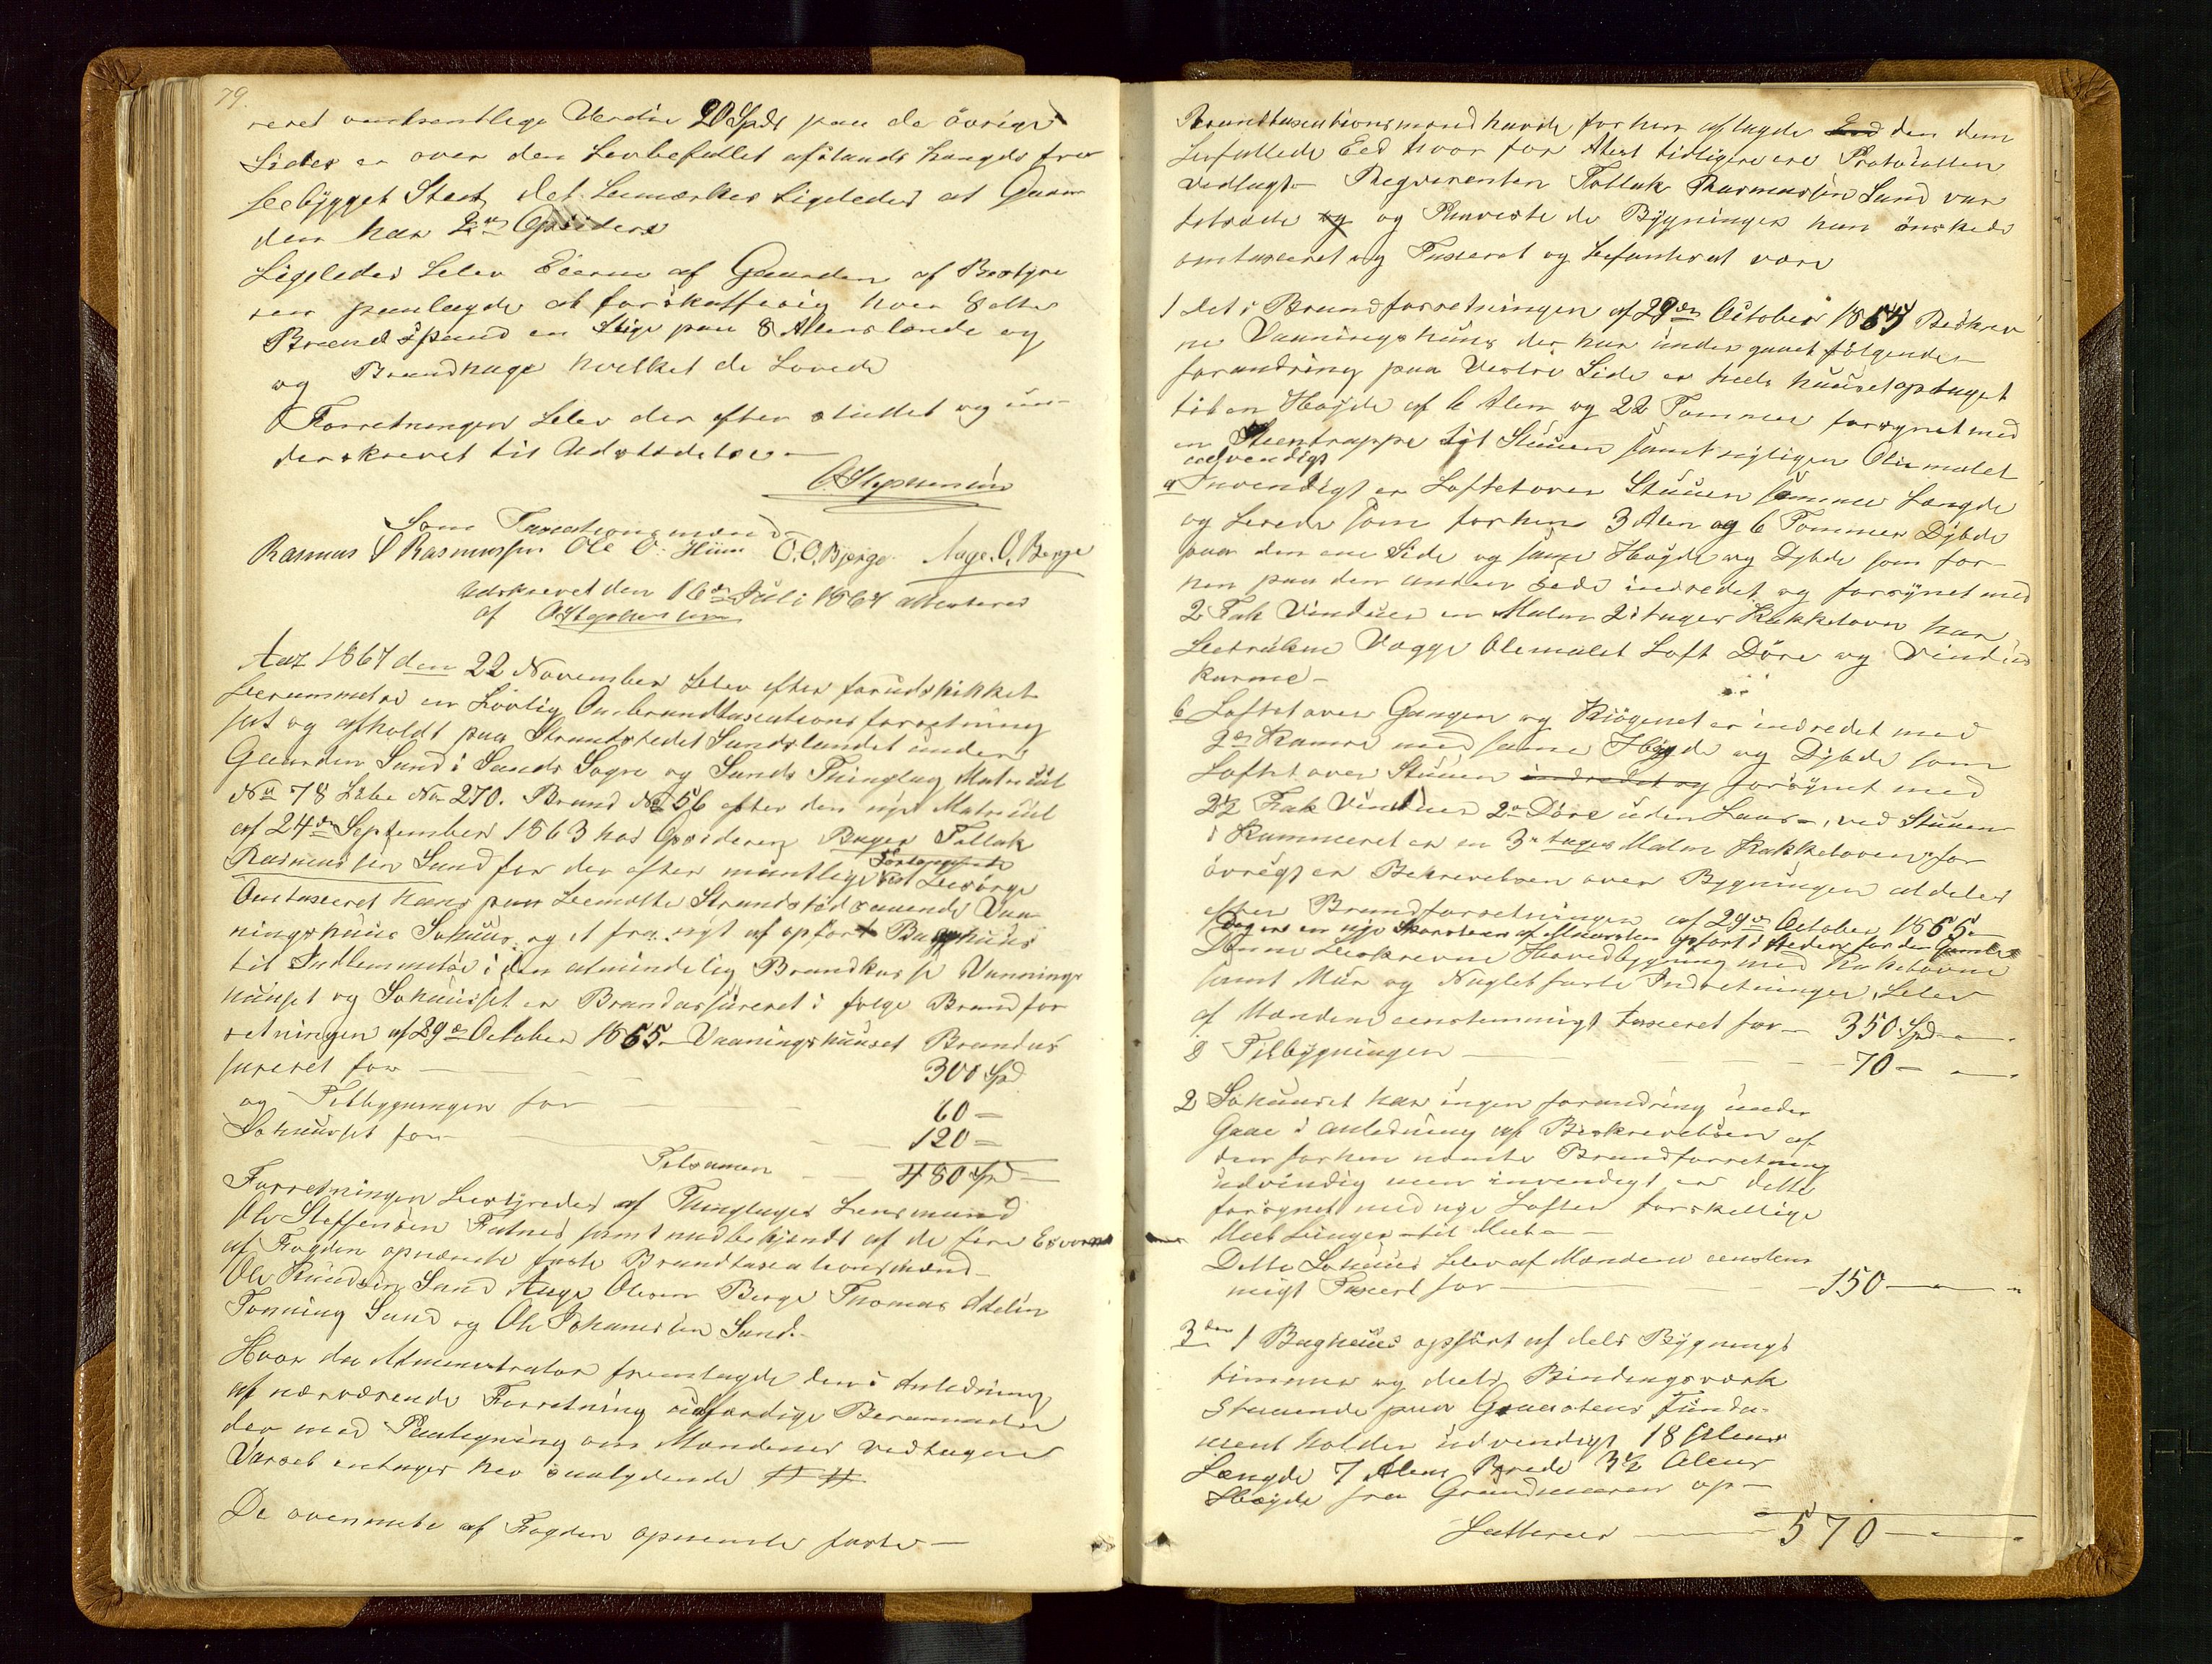 79.
reret Verdie 20 Spd paa de övrige
Sider er over den befallet afstands Længde fra
bebygget Sted, det bemærkes ligeledes at Gaar
den har 2de Opsidere
Ligeledes blev Eierne af Gaarden af Bestyre
ren paalagde at forskaffe sig hver 8 otte
Brandspand en Stige paa 8 Alens længde og
og Brandhage hvilket de lovede
Forretningen blev der efter sluttet og un-
derskrevet til Udstedelse
O Stephensen
Som Taxationsmænd
Rasmus Rasmussen Ole O. Hiim O. O. Bjerge Aage O. Berge
Udskrevet den 16de Juli 1867 attesteres
af O Stephensen
Aar 1867 den 22 November blev efter forudskikket
berammelse en Lovlig Ombrandtaxationsforretning
sat og afholdt paa Strandstedet Sandslandet under
Gaarden Sand i Sands Sogn og Sands Thinglag Matricul
No 78 Løbe No 270. Brand No 56 efter den nye Matricul
af 24de September 1863 hos Opsideren Bager Tollak
Rasmussen Sand for der efter mundtlige Forlangende ved besörge
Omtaxeret hans paa bemelte Strandsted staaende Vaa
ningshuus Søhuus og et fra nyt af opfört Baghuus
til Indlemmelse i den almindelig Brandkasse Vaanings
huuset og Søhuusset er Brandassureret i følge Brandfor
retningen af 29de October 1865 Vaaningshuuset Brandas
sureret for 300 Spd
og Tilbygningen for 60 —
Søhuusset for 120 —
Tilsamen 480 Spd —
Forretningen bestyredes af Thinglagets Lensmand
Ole Steffensen Fatnes samt medbetjendt af de fire Esvorne
af Fogden opnævnte faste Brandtaxationsmænd
Ole Knudsen Sand Aage Olsen Berge Thomas Adelin
Tonning Sand og Ole Johanessen Sand.
Hvor da Administrator fremlagde den i Anledning
af nærværende Forretning udfærdige Berammelse
der med Paategning om Mændenes vedtagne
Varsel indtages her saalydende # #
De ovennevnte af Fogden opnevnte faste —
Brandtaxationsmænd havde forhen aflagde Eed den dem
befallede Eed hvor for Atest tidligere ere Protocollen
vedlagt. Reqverenten Tollak Rasmussen Sand var
tilstæde og og Paaviste de Bygninger han önskede
omtaxeret og Taxeret og befantes at være
1 det i Brandforretningen af 29de October 1865 Beskrev
ne Vaaningshuus der har undergaaet følgende
forandring paa Vestre Side er hele huuset optaget
til en Høyde af 6 Alen og 22 Tommer forsynet med
en Steentrappe til Stuuen samt nyligen Oliemalet
udvendigt
a Invendigt er Loftet over Stuuen samme Længde
og brede som forhen 3 Alen og 6 Tommer Dybde
paa den ene Side og samme Høyde og Dybde som for-
hen paa den anden Side indredet og forsynet med
2 Fak Vinduer en Malm 2 etages Kakkelovn har
betrukne Vægge Oliemalet Loft Döre og Vindues
karme —
b Loftet over Gangen og Kiögenet er indredet med
2de Kamre med samme Høyde og Dybde som
Loftet over Stuuen indredet og forsynet med
2½ Fak Vinduer 2de Döre uden Laas, ved Stuuen
i Kammeret er en 3 etages Malm Kakkeloven for
övrigt er Beskrivelsen over Bygningen aldeles
efter Brandforretningen af 29de October 1865.
Dog er en nye Skorsteen af Muursten opfört i steden for den Gamle
Denne beskrevne Hovedbygning med Kakelovne
samt Mur og Naglefaste Indretninger, blev
af Mændene eenstemmigt taxeret for — 350 Spd —
Tilbygningen — 70 —
2 Søhuuset har ingen forandring under
Gaae i anledning af Beskrevelsen af
den forhen nævnte Brandforretning
udvindig men invendigt er dette
forsynet med nye Lofter forskellige
Meel til Meel —
Dette Søhuus blev af Mændene eenstem
migt Taxert for — 150 —
3die 1 Baghuus opfört af dels Bygnings
timmer og dels Bindingsværk
Staaende paa Graastens Funda-
ment holder udvendigt 18 Alens
Længde 7 Alens Brede 3½ Alens
Høyde fra Grundmuren op —
Latterer — 570 —